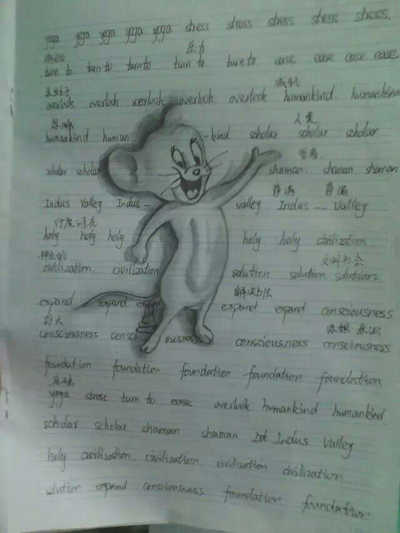 yoga yoga yoga yoga yoga stress stress stress stress stress.
压力
turn to turn to turn to turn to turn to ease ease ease ease.
overlook overlook overlook overlook overlook humankind humankind
忽略 人类
humankind human -kind scholar scholar scholar
学者
scholar scholar shaman. shaman shaman
Indus Valley Indus valley Indus Valley
holy holy holy holy holy civilization
civilization civilization solution solution solutions
解决办法
expand expand expand expand expand consciousness
扩大
consciousness consciousness consciousness consciousness
foundation foundation foundation foundation foundation
yoga stress turn to ease overlook humankind humankind
scholar scholar shaman shaman Indus Valley
holy civilization civilization civilization civilization
solution expand consciousness foundation foundation